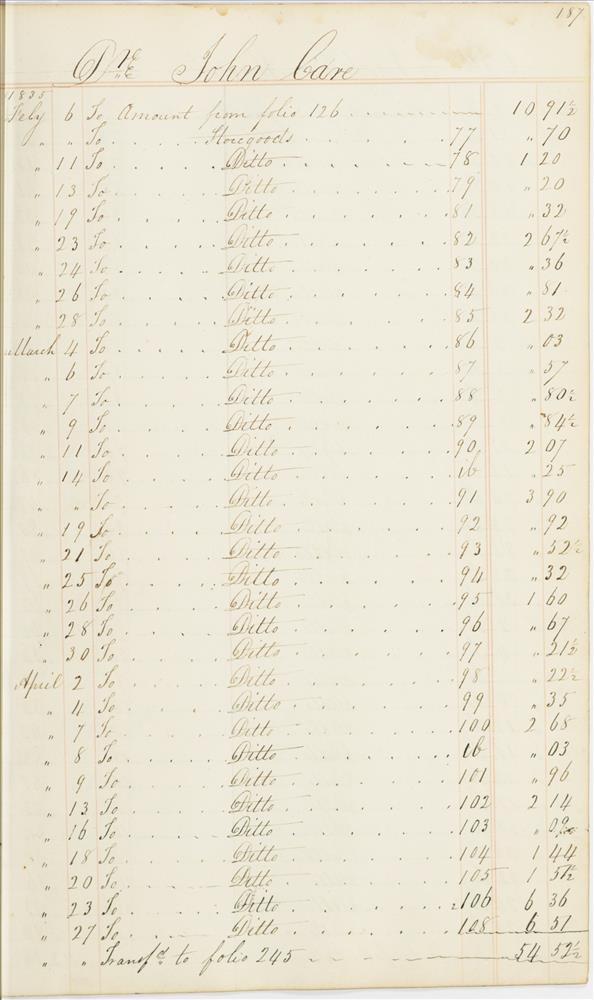 187
Dr. John Care
1835
Feby 6 To Amount from folio 126 10 91½
" " To Storegoods 77 " 70
" 11 To Ditto 78 1 20
" 13 To Ditto 79 " 20
" 19 To Ditto 81 " 32
" 23 To Ditto 82 2 67½
" 24 To Ditto 83 " 36
" 26 To Ditto 84 " 81
" 28 To Ditto 85 2 32
March 4 To Ditto 86 " 03
" 6 To Ditto 87 " 57
" 7 To Ditto 88 " 80½
" 9 To Ditto 89 " 84½
" 11 To Ditto 90 2 07
" 14 To Ditto ib " 25
" " To Ditto 91 3 90
" 19 To Ditto 92 " 92
" 21 To Ditto 93 " 52½
" 25 To Ditto 94 " 32
" 26 To Ditto 95 1 60
" 28 To Ditto 96 " 67
" 30 To Ditto 97 " 21½
April 2 To Ditto 98 " 22½
" 4 To Ditto 99 " 35
" 7 To Ditto 100 2 68
" 8 To Ditto ib " 03
" 9 To Ditto 101 " 96
" 13 To Ditto 102 2 14
" 16 To Ditto 103 " 09
" 18 To Ditto 104 1 44
" 20 To Ditto 105 1 51½
" 23 To Ditto 106 6 36
" 27 To Ditto 108 6 51
" " Transfd. to folio 245 54 52½